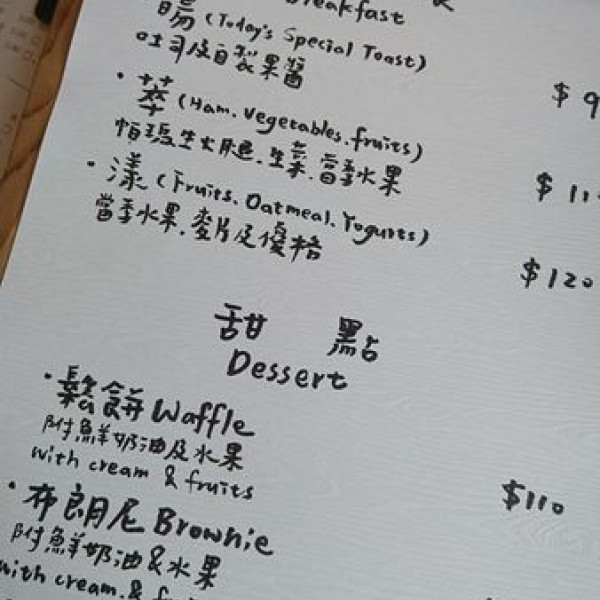 Breakfast
(Today's Special Toast)
吐司及自製果醬
$ 9
· 莽 (Ham. Vegetables. fruits)
帕瑪生火腿. 生菜. 當季水果
$ 11
· 漾 (Fruits. Oatmeal. Yogurts)
當季水果. 麥片及優格
$120
甜 點
Dessert
· 鬆餅 Waffle
附鮮奶油及水果
with cream & fruits
$110
· 布朗尼 Brownie
附鮮奶油&水果
with cream. &